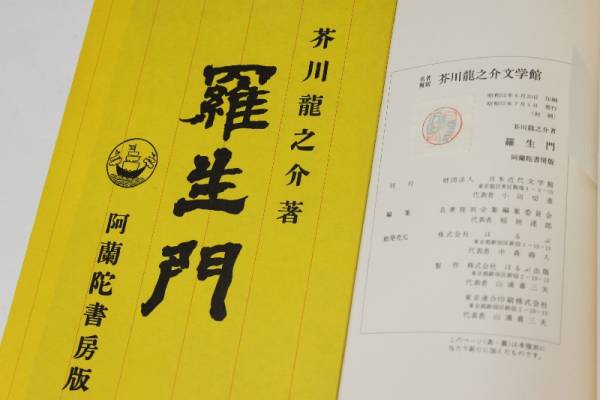 芥川龍之介著
羅生門
阿蘭陀書房版
名著複刻 芥川龍之介文学館
昭和52年6月20日 印刷
昭和52年7月1日 発行
芥川龍之介著
羅生門
阿蘭陀書房版
刊行 財団法人 日本近代文学館
代表者 小田切進
編集 名著複刻全集編集委員会
代表者 稲垣達郎
総発売元 株式会社 ほるぷ
代表者 中森蒔人
製作 株式会社 ほるぷ出版
代表者
東京連合印刷株式会社
代表者
このページ(表・裏)は本複刻に
当たり新たに加えたものです。